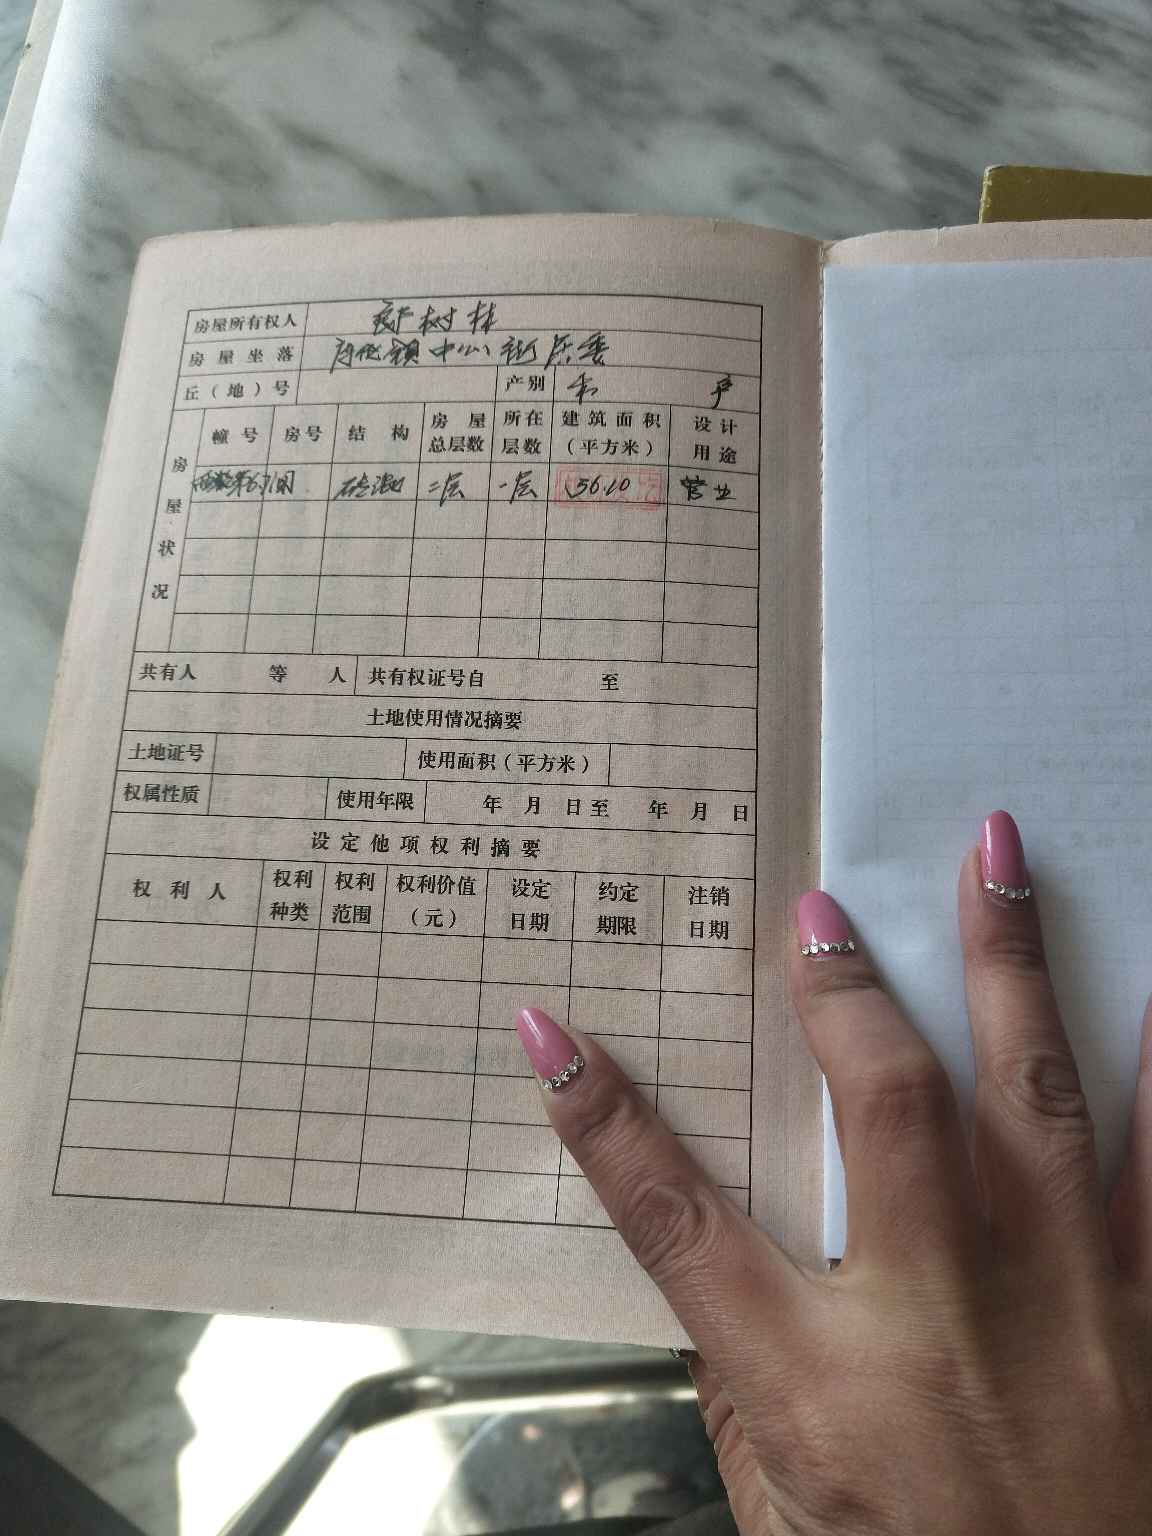 房屋所有权人 树林
房屋坐落 镇中心街居委
丘(地)号 产别 私 产
房屋状况 幢号 房号 结构 房屋总层数 所在层数 建筑面积(平方米) 设计用途
第6间 砖混 二层 一层 56.10 营业
共有人 等 人 共有权证号自 至
土地使用情况摘要
土地证号 使用面积(平方米)
权属性质 使用年限 年 月 日至 年 月 日
设定他项权利摘要
权利人 权利种类 权利范围 权利价值(元) 设定日期 约定期限 注销日期